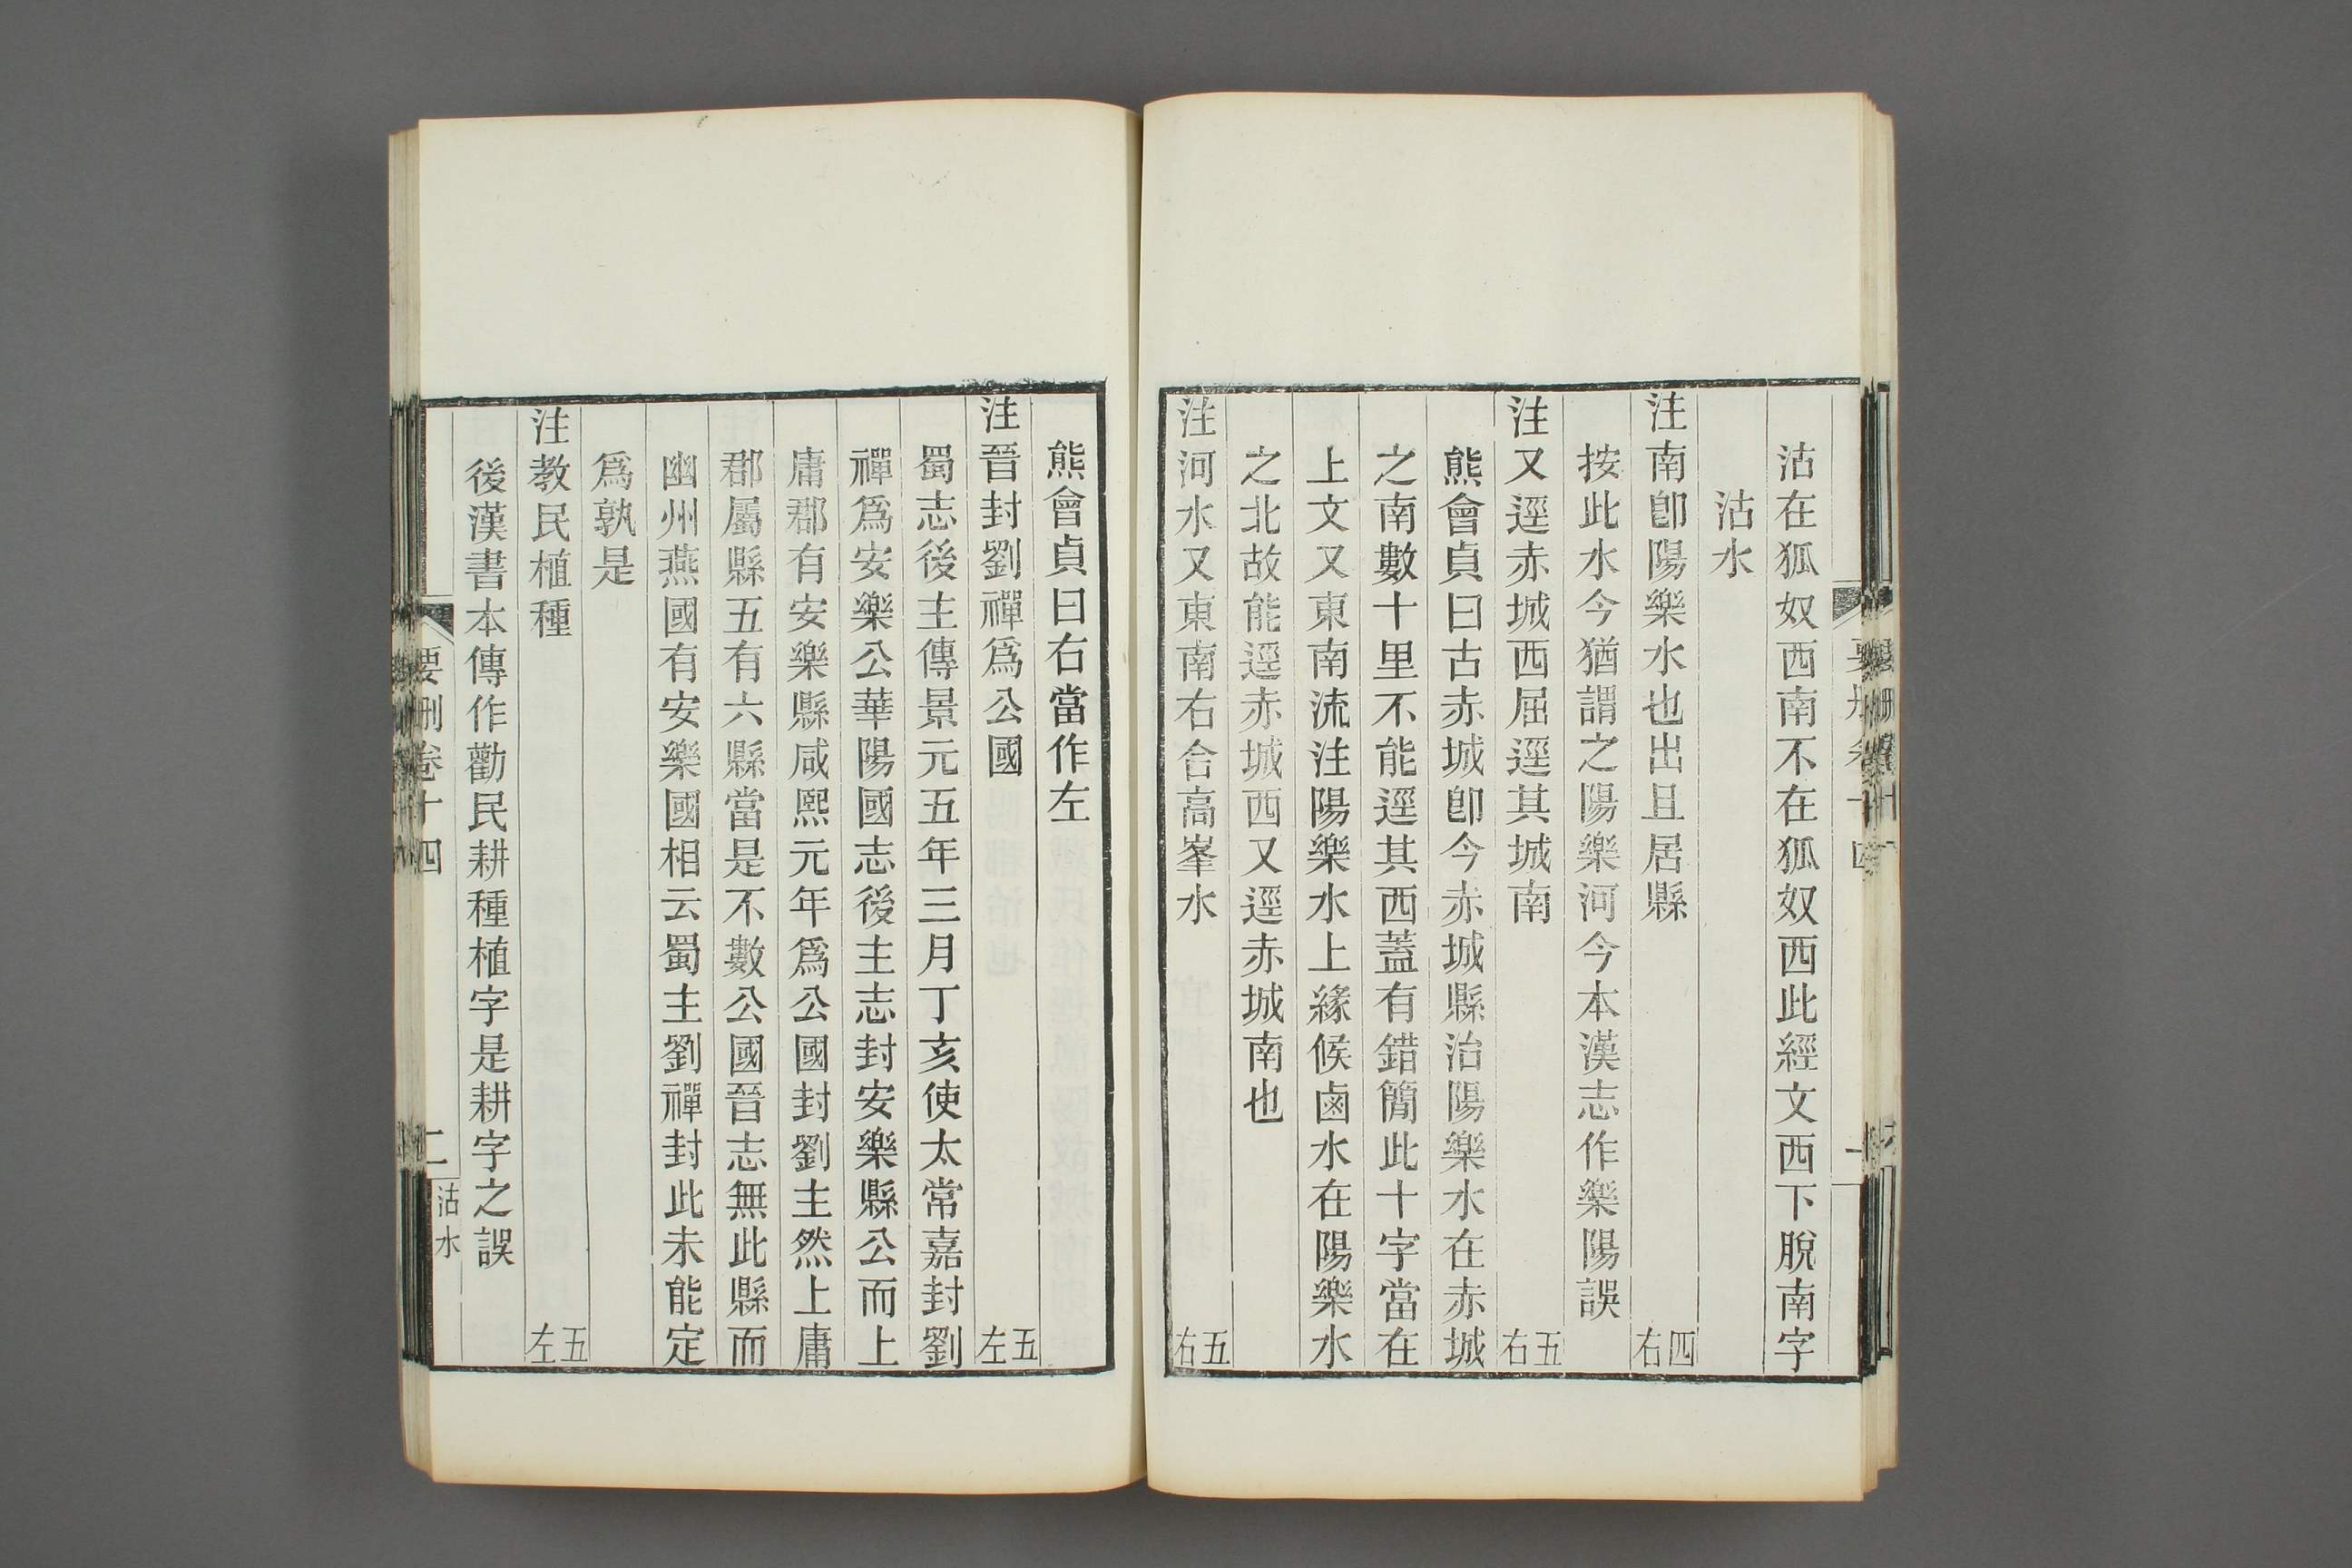 沽在狐奴西南不在狐奴西此經文西下脫南字
沽水
注南卽陽樂水也出且居縣 四右
按此水今猶謂之陽樂河今本漢志作樂陽誤
注又逕赤城西屈逕其城南 五右
熊會貞曰古赤城卽今赤城縣治陽樂水在赤城
之南數十里不能逕其西蓋有錯簡此十字當在
上文又東南流注陽樂水上緣候鹵水在陽樂水
之北故能逕赤城西又逕赤城南也
注河水又東南右合高峯水 五右
熊會貞曰右當作左
注晉封劉禪爲公國 五左
蜀志後主傳景元五年三月丁亥使太常嘉封劉
禪爲安樂公華陽國志後主志封安樂縣公而上
庸郡有安樂縣咸熙元年爲公國封劉主然上庸
郡屬縣五有六縣當是不數公國晉志無此縣而
幽州燕國有安樂國相云蜀主劉禪封此未能定
爲孰是
注教民植種 五左
後漢書本傳作勸民耕種植字是耕字之誤
要删卷十四
二
沽水